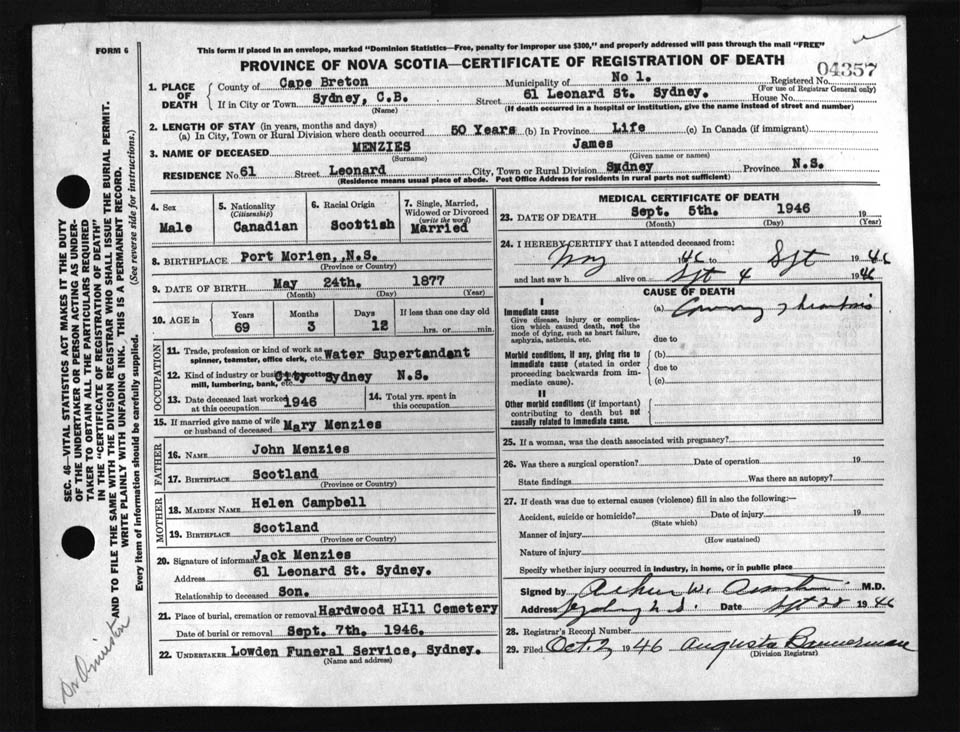 FORM 6
This form if placed in an envelope, marked "Dominion Statistics—Free, penalty for improper use $300," and properly addressed will pass through the mail "FREE"
PROVINCE OF NOVA SCOTIA—CERTIFICATE OF REGISTRATION OF DEATH
04357
1. PLACE OF DEATH
County of Cape Breton Municipality of No 1. Registered No.
(For use of Registrar General only)
If in City or Town Sydney, C.B. Street 61 Leonard St. Sydney. House No.
(Name) (If death occurred in a hospital or institution, give the name instead of street and number)
2. LENGTH OF STAY (in years, months and days)
(a) In City, Town or Rural Division where death occurred 50 Years (b) In Province Life (c) In Canada (if immigrant)
3. NAME OF DECEASED MENZIES James
(Surname) (Given name or names)
RESIDENCE No. 61 Street Leonard City, Town or Rural Division Sydney Province N.S.
(Residence means usual place of abode. Post Office Address for residents in rural parts not sufficient)
4. Sex
Male
5. Nationality
(Citizenship)
Canadian
6. Racial Origin
Scottish
7. Single, Married, Widowed or Divorced
(write the word)
Married
8. BIRTHPLACE Port Morien, N.S.
(Province or Country)
9. DATE OF BIRTH May 24th. 1877
(Month) (Day) (Year)
10. AGE in Years Months Days If less than one day old
69 3 12 hrs. or min.
OCCUPATION
11. Trade, profession or kind of work as spinner, teamster, office clerk, etc. Water Supertandant
12. Kind of industry or business, as cotton mill, lumbering, bank, etc. City Sydney N.S.
13. Date deceased last worked at this occupation 1946
14. Total yrs. spent in this occupation
15. If married give name of wife or husband of deceased Mary Menzies
FATHER
16. NAME John Menzies
17. BIRTHPLACE Scotland
(Province or Country)
MOTHER
18. MAIDEN NAME Helen Campbell
19. BIRTHPLACE Scotland
(Province or Country)
20. Signature of informant Jack Menzies
Address 61 Leonard St. Sydney.
Relationship to deceased Son.
21. Place of burial, cremation or removal Hardwood Hill Cemetery
Date of burial or removal Sept. 7th. 1946.
22. UNDERTAKER Lowden Funeral Service, Sydney.
(Name and address)
MEDICAL CERTIFICATE OF DEATH
23. DATE OF DEATH Sept. 5th. 1946 19
(Month) (Day) (Year)
24. I HEREBY CERTIFY that I attended deceased from:
1946 to Sept 1946
and last saw h alive on Sept 4 1946
CAUSE OF DEATH
I
Immediate cause
Give disease, injury or complication which caused death, not the mode of dying, such as heart failure, asphyxia, asthenia, etc.
(a) Coronary Thrombosis
due to
Morbid conditions, if any, giving rise to immediate cause (stated in order proceeding backwards from immediate cause).
(b)
due to
(c)
II
Other morbid conditions (if important) contributing to death but not causally related to immediate cause.
25. If a woman, was the death associated with pregnancy?
26. Was there a surgical operation? Date of operation 19
State findings Was there an autopsy?
27. If death was due to external causes (violence) fill in also the following:—
Accident, suicide or homicide? Date of injury 19
(State which)
Manner of injury
(How sustained)
Nature of injury
Specify whether injury occurred in industry, in home, or in public place
Signed by Arthur W. M.D.
Address Sydney N.S. Date Sept 28 1946
28. Registrar's Record Number
29. Filed Oct. 2 1946 Augusta Bannerman
(Division Registrar)
SEC. 46—VITAL STATISTICS ACT MAKES IT THE DUTY
OF THE UNDERTAKER OR PERSON ACTING AS UNDER-
TAKER TO OBTAIN ALL THE PARTICULARS REQUIRED
IN THE "CERTIFICATE OF REGISTRATION OF DEATH"
AND TO FILE THE SAME WITH THE DIVISION REGISTRAR WHO SHALL ISSUE THE BURIAL PERMIT.
WRITE PLAINLY WITH UNFADING INK. THIS IS A PERMANENT RECORD.
Every item of information should be carefully supplied. (See reverse side for instructions.)